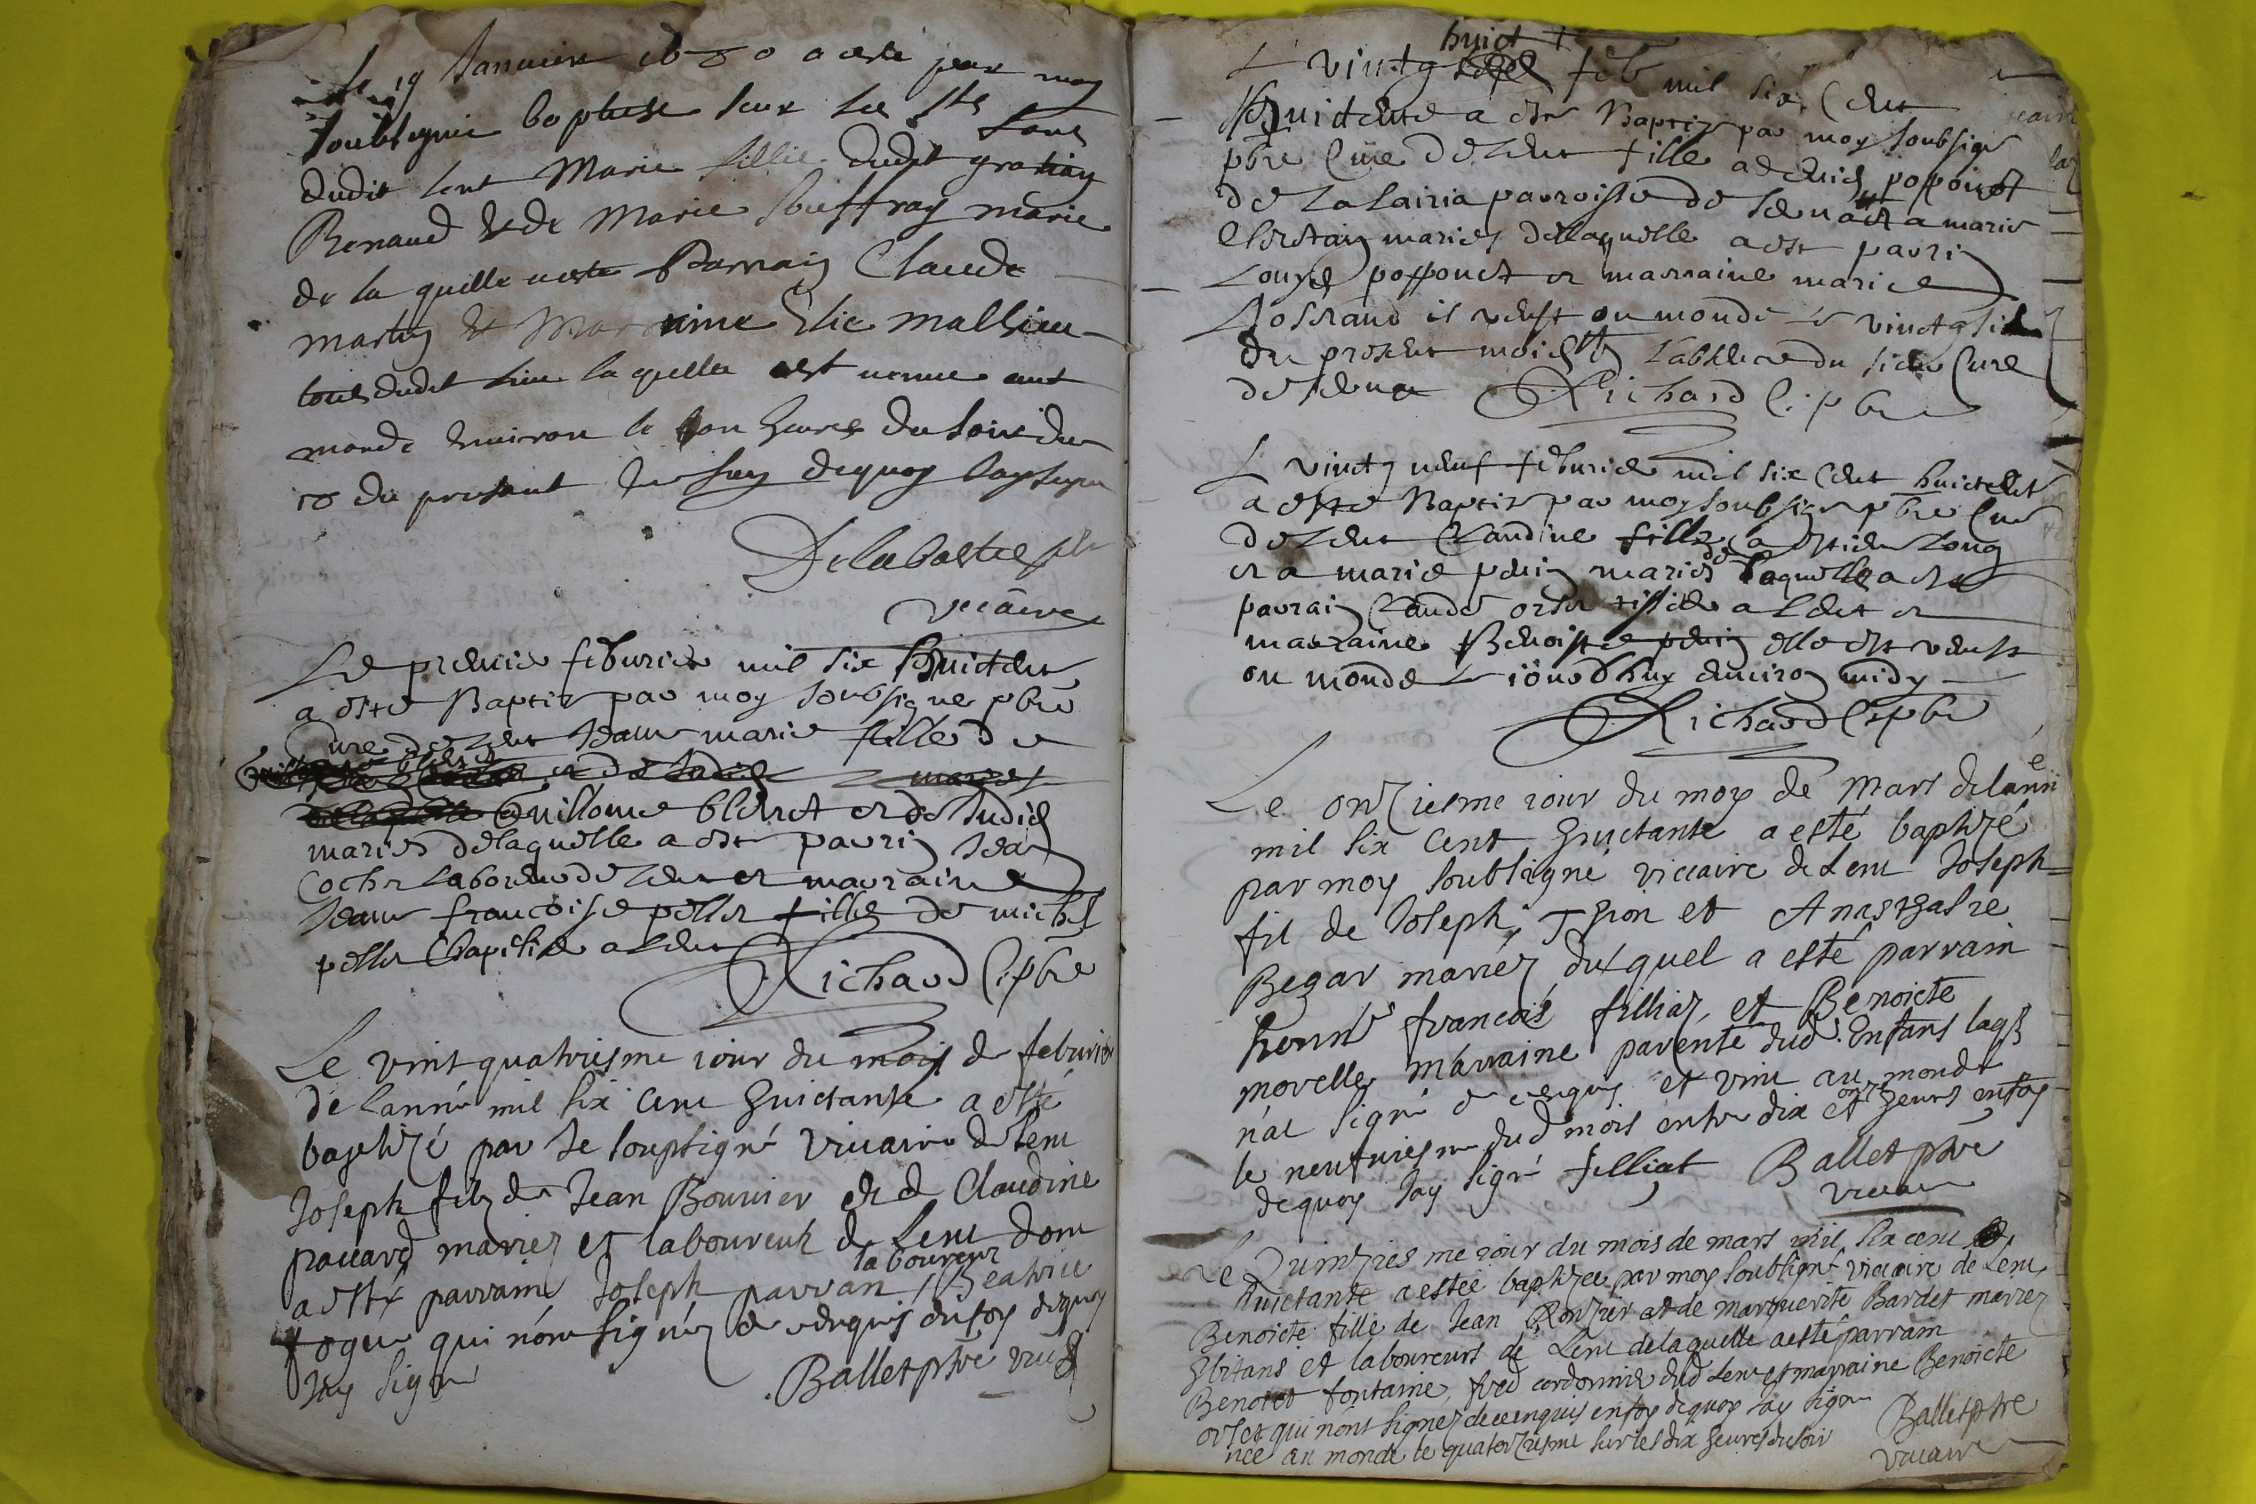 Le 19 Januier 1680 a esté par moy
soubsigné baptisé sur les sts fons
dudit lent Marie fillie dudit gratian
Renaud et de Marie Souffray marié
de la quelle a esté Parrain Claude
martin et Marraine Elie mathieu
tous dudit lieu la quelle est venue aut
monde enuiron le heures du soir du
18 du present En foy dequoy Jay signe
Delabastie pbr
vicaire
Le premier feburier mil six huictente
a esté Baptisé par moy soubsigné pbre
Cure de Lent Jeane marie fille de
et de Judich mariés
Guillaume et de Judich
mariés de laquelle a esté parrin Jean
Cochr Laboreur de Lent et marraine
Jeane francoise pelles fille de michel
pelles a Lent
Richard C. pbre
Le vintquatriesme iour du mois de feburier
de Lanné mil six cent huictante a esté
baptizé par Je soubsigné Vicaire de Lent
Joseph filz de Jean Bouuier et de Claudine
pauard mariez et laboureur de Lent dont
laboureur
a esté parrain Joseph parran / Beatrice
qui nont signéz de ce enquis en foy dequoy
Jay signé
Ballet pbre vic
huict
L vintg sept feb mil six Cent
Huictente a esté Baptizé par moy soubsigé
pbre Cure de Lent fille a popouet
de La Lairia parroisse de a marie
mariés de laquelle a esté parrin
Louys popouet et marraine marie
Jossrand il venst ou monde le vinctg six
du present mois En Labsence du sieur Cure
de
Richard C. pbre
L vinctg neuf feburier mil six Cent huictente
a esté Baptizé par moy soubsigé pbre Cure
de Lent Claudine fille a Long
et a marie perin mariés de Laquelle a esté
parrain Claude orset tissier a Lent et
marraine Benoiste perin elle est venst
ou monde Le iourdhuy enuiron midy
Richard C. pbre
Le onziesme iour du moy de Mars de lanné
mil six Cent huictante a esté baptizé
par moy soubsigné viccaire de Lent Joseph
fil de Joseph Thion et Anasthasie
Begar mariéz duxquel a esté parrain
honn francois filliaz, et Benoicte
morelle marraine parente dud Enfans laqll
nat signé de ce enquis et vint au monde
le neufuiesme dud mois entre dix et onze heures enfoy
dequoy Jay signé filliat Ballet pbre
vicaire
Le Quinziesme iour du mois de mars mil six cent
huictante a estée baptizée par moy soubsigné viccaire de Lent
Benoicte fille de Jean Ronzier et de marguerite Bardet mariez
hbitans et laboureurs de Lent de laquelle a esté parrain
Benoict fontaine, cordonnier dud Lent et marraine Benoicte
orset qui nont signéz de ce enquis en foy dequoy Jay signe
née au monde le quatorziesme sur les dix heures du soir
Ballet pbre
vicaire